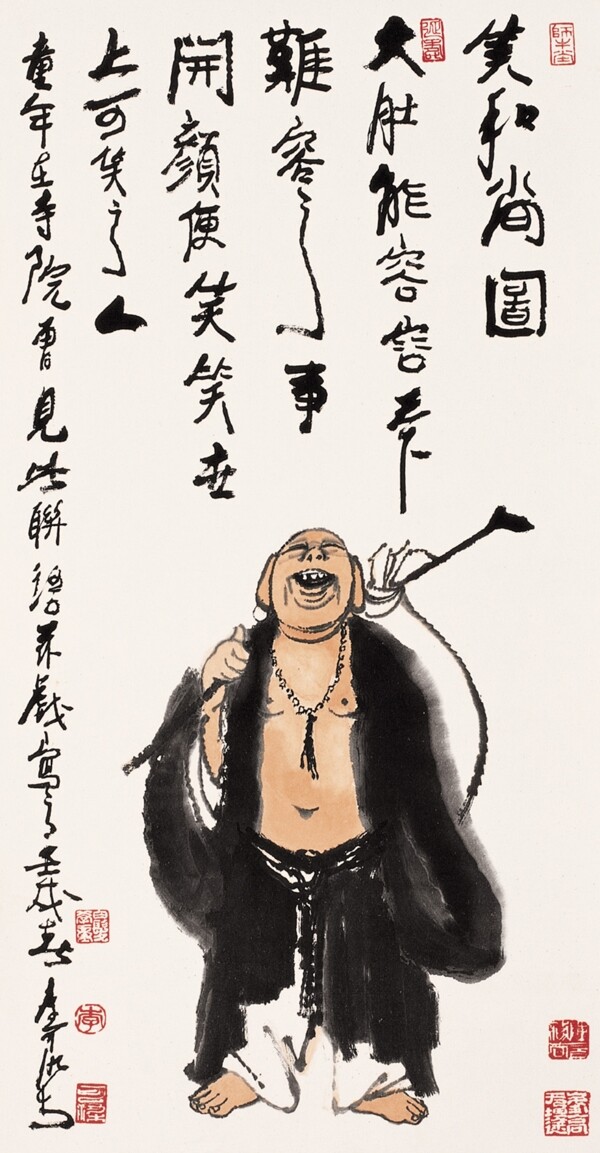 笑和尚圖
大肚能容容天下
難容之事
開顏便笑笑世
上可笑之人
童年在寺院曾見此聯語戲寫之壬戌春李可染
師牛堂
李